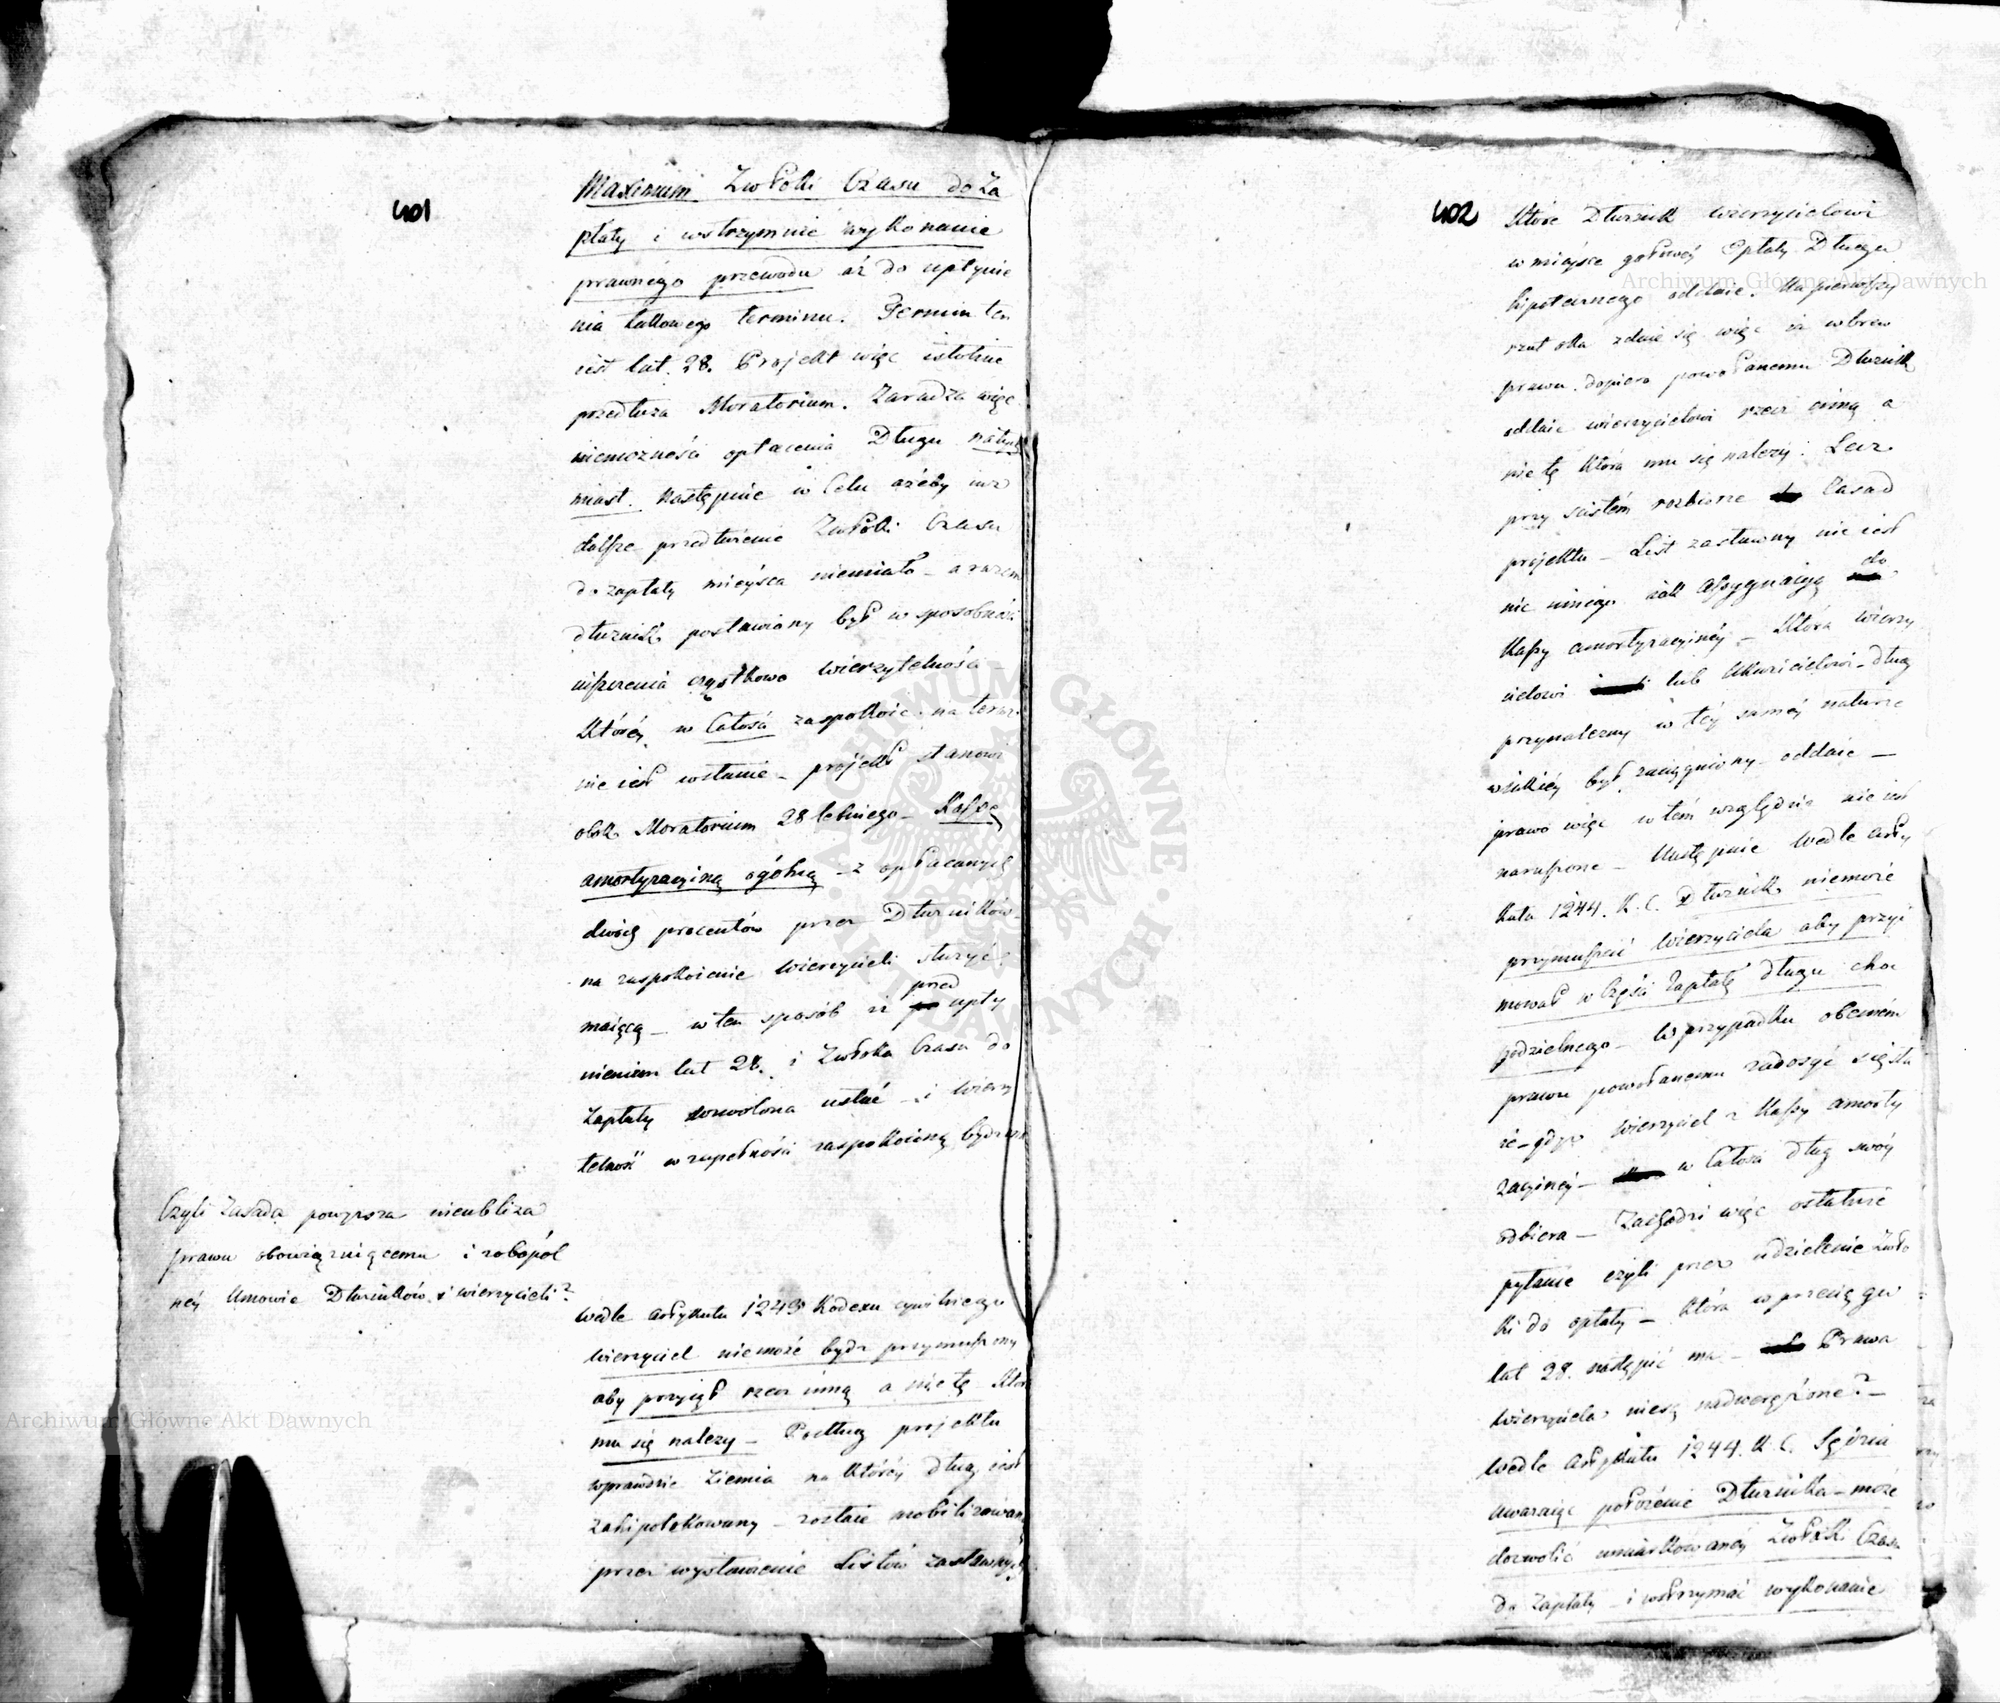 401
Maximum Zwłoki Czasu do Za
płaty i wstrzymnie wykonanie
prawnego przewodu aż do upłynie
nia takowego terminu. Termin ten
iest lat 28. Projekt więc istotnie
przedłuża Moratorium. Zaradza więc
niemożności opłacenia Długu natych
miast. Następnie w Celu ażeby iuż
dalsze przedłużenie Zwłoki Czasu
do zapłaty mieysca niemiało – a razem
dłużnik postawiony był w sposobności
niszczenia cząstkowo wierzytelności
Któréy w Całości zaspokoić na teraz
nie iest wstanie – projekt stanowi
obok Moratorium 28 letniego – Kassę
amortyzacyiną ogólną – z opłacanych
dwóch procentów przez Dłużników
na zaspokoienie Wierzycieli służyć
maiącą – w ten sposób iż przed upły
nieniem lat 28. i Zwłoka Czasu do
Zapłaty dozwolona ustać – i Wierzy
telność w zupełności zaspokoioną będzie
Czyli Zasada powyższa nieubliża
prawu obowiązuiącemu i robopól
néy Umowie Dłużników i wierzycieli?
Wedle Artykułu 1243 Kodexu cywilnego
Wierzyciel niemoże bydź przymuszony
aby przyiął rzecz inną a nie tę Która
mu się należy – Podług projektu
wprawdzie Ziemia na Któréy dług iest
zahipotekowany – zostaie mobilizowaną
przez wystawienie Listów zastawnych
402
Które Dłużnik Wierzycielowi
w mieysce gotowéy Opłaty Długu
hipotecznego oddaie. Na pierwszy
rzut oka zdaie się więc iż wbrew
prawu dopiero powołanemu Dłużnik
oddaie wierzycielowi rzecz inną a
nie tę Która mu się należy. Lecz
przy ścisłém rozbiorze Zasad
projektu – List zastawny nie iest
nic innego iak Assygnacyą do
Kassy amortyzacyinéy – Która wierzy
cielowi lub Okazicielowi – dług
przynależny w téy saméy naturze
w iakiéy był zaciągniony – oddaie –
prawo więc w tém względzie nie iest
naruszone – Następnie Wedle Arty
kułu 1244. K. C. Dłużnik niemoże
przymuszać Wierzyciela aby przyi
mował w Części Zapłatę długu choć
podzielnego – W przypadku obecném
prawu powołanemu zadosyć się sta
ie – gdyż Wierzyciel z Kassy amorty
zacyinéy – w Całości dług swóy
odbiera – Zachodzi więc ostatnie
pytanie czyli przez udzielenie Zwło
ki do opłaty – Która w przeciągu
lat 28. nastąpić ma – Prawa
Wierzyciela niesą nadwerężone? –
Wedle Artykułu 1244. K. C. Sędzia
uważaiąc położenie Dłużnika – może
dozwolić umiarkowanéy Zwłoki Czasu
do Zapłaty – i wstrzymać wykonanie
Archiwum Główne Akt Dawnych
Archiwum Główne Akt Dawnych
ARCHIWUM GŁÓWNE · AKT DAWNYCH ·